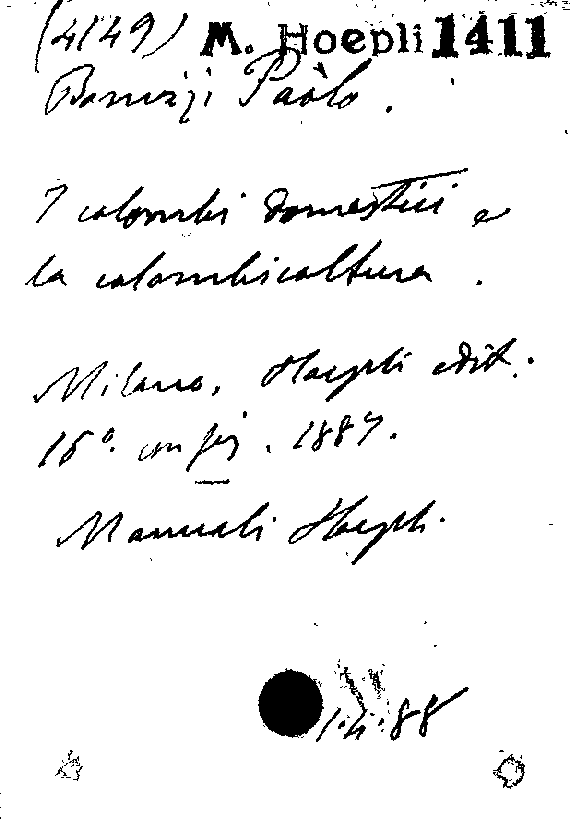 (4149) M. Hoepli 1411
Bonizzi Paolo.
I colombi domestici e
la colombicoltura.
Milano, Hoepli edit.
16°. con fig. 1887.
Manuali Hoepli.
1.4.88